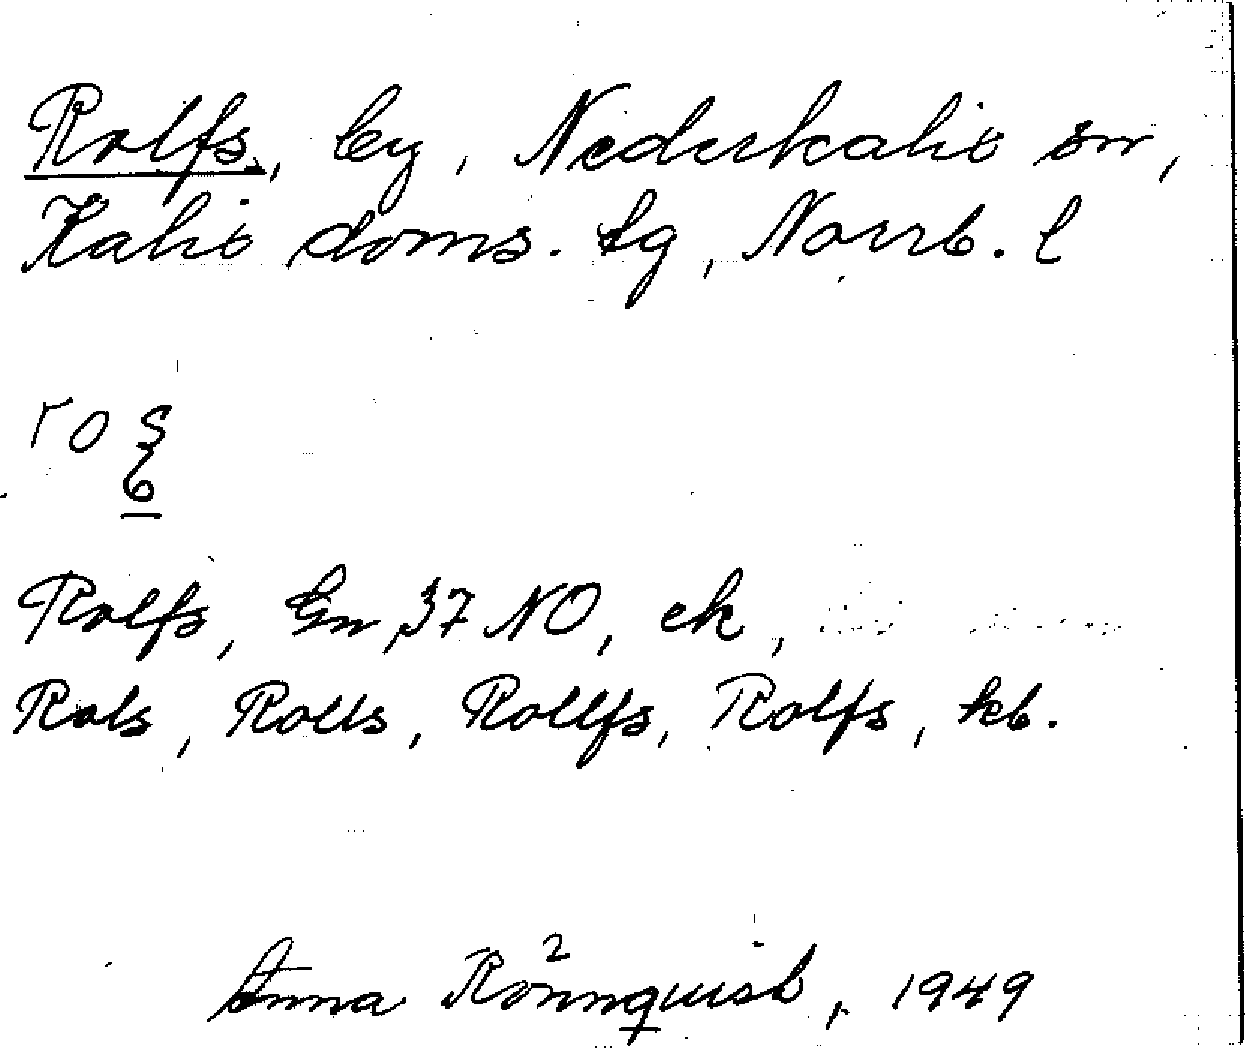 Rolfs, by, Nederkalix sn,
Kalix doms. tg, Norrb. l
Rolfs, Gn 37 NO, ek,
Rols, Rolls, Rollfs, Rolfs, kb.
Anna Rönnquist, 1949